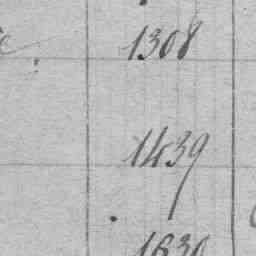 1308
1439
1630